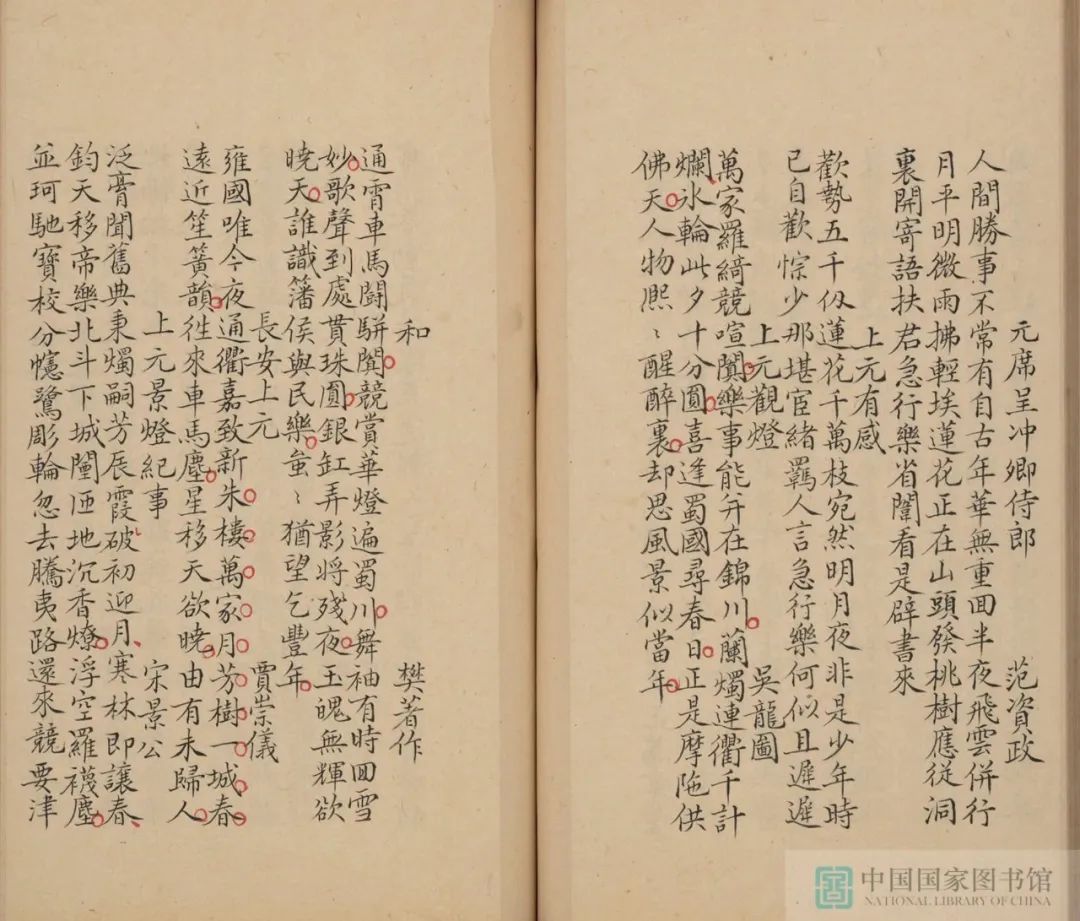 元席呈冲卿侍郎　范資政
人間勝事不常有自古年華無重回半夜飛雲併行
月平明微雨拂輕埃蓮花正在山頭發桃樹應從洞
裏開寄語扶君急行樂省闈看是辟書來
上元有感
歡勢五千仭蓮花千萬枝宛然明月夜非是少年時
已自歡悰少那堪宦緒羈人言急行樂何似且遲遲
上元觀燈　吳龍圖
萬家羅綺競喧闐樂事能并在錦川蘭燭連衢千計
爛氷輪此夕十分圓喜逢蜀國尋春日正是摩陁供
佛天人物熈〻醒醉裏却思風景似當年
和　樊著作
通宵車馬鬬駢闐競賞華燈遍蜀川舞袖有時回雪
妙歌聲到處貫珠圓銀缸弄影將殘夜玉魄無輝欲
曉天誰識籓侯與民樂蚩〻猶望乞豐年
長安上元　賈崇儀
雍國唯今夜通衢嘉致新朱樓萬家月芳樹一城春
遠近笙簧韻徃來車馬塵星移天欲曉由有未歸人
上元景燈紀事　宋景公
泛膏聞舊典秉燭嗣芳辰霞破初迎月寒林即讓春
鈞天移帝樂北斗下城闉匝地沉香燎浮空羅襪塵
並珂馳寶校分幰鷺彫輪忽去騰夷路還來競要津
中国国家图书馆
NATIONAL LIBRARY OF CHINA